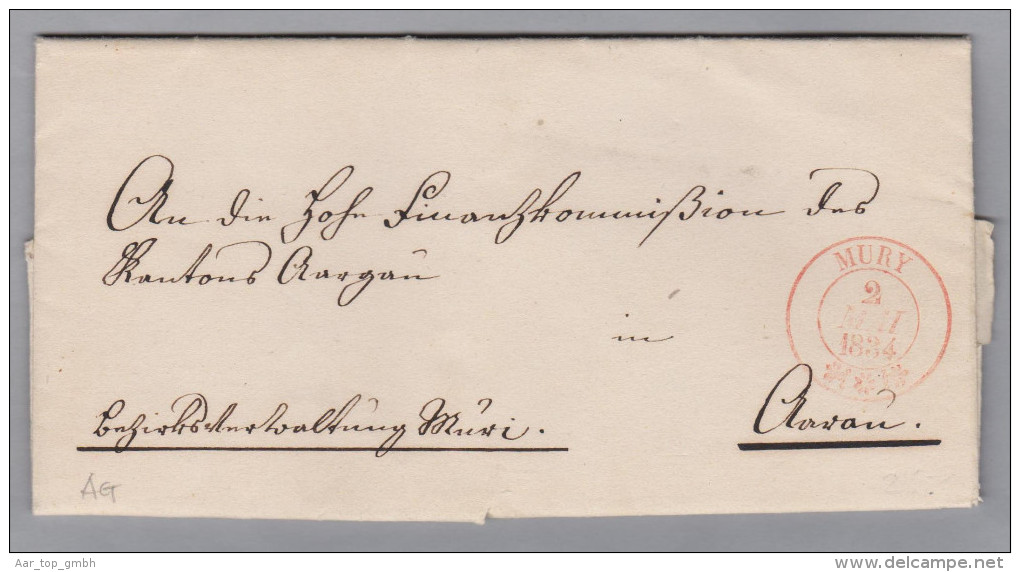 An die Hohe Finanzkommißion des
Kantons Aargau
MURY
2
MAI
1834
in
Bezirksverwaltung Muri.
Aarau.
AG
Aar_top_gmbh
www.delcampe.net